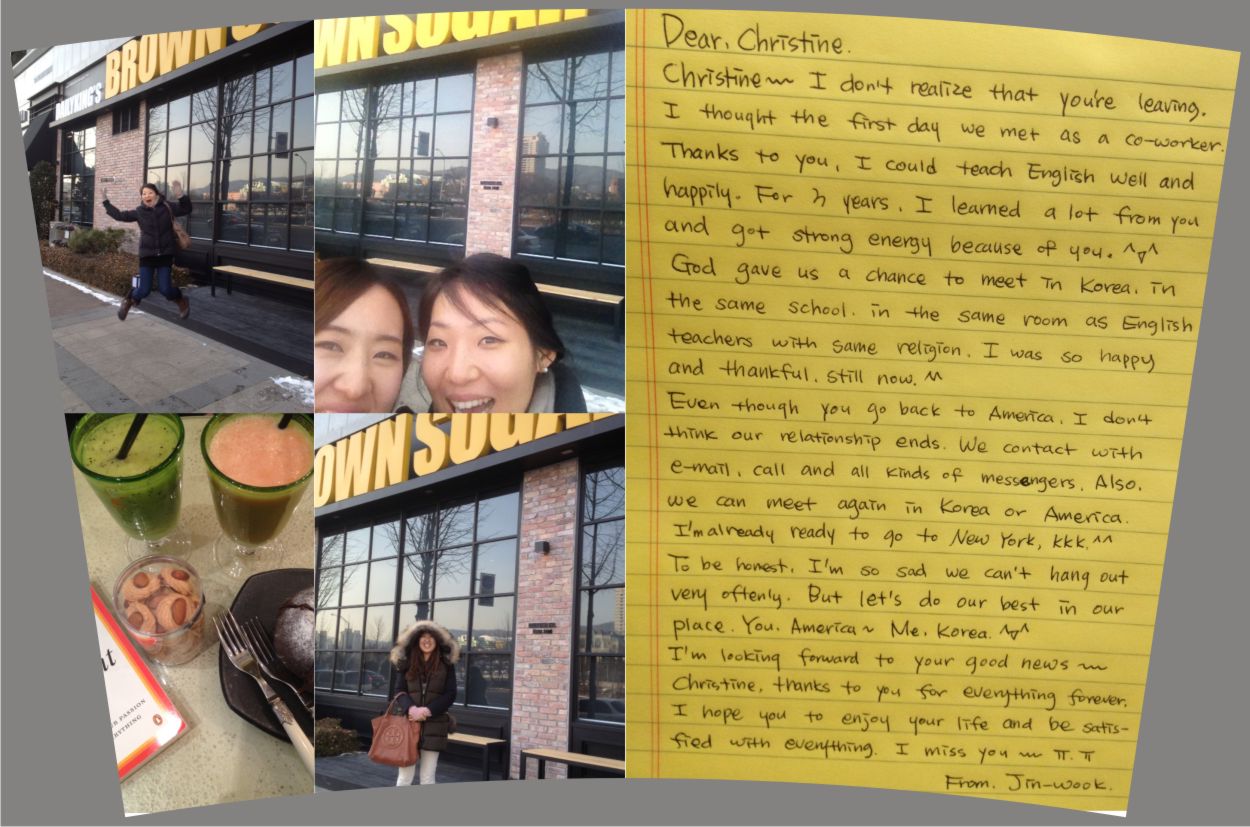 BROWN S
DAILYKING'S
WN SUGAR
OWN SUGA
ht
R PASSION
RYTHING
Dear. Christine.
Christine~ I don't realize that you're leaving.
I thought the first day we met as a co-worker.
Thanks to you, I could teach English well and
happily. For years, I learned a lot from you
and got strong energy because of you. ^▽^
God gave us a chance to meet in Korea. in
the same school. in the same room as English
teachers with same religion. I was so happy
and thankful. still now. ^^
Even though you go back to America, I don't
think our relationship ends. We contact with
e-mail, call and all kinds of messengers. Also,
we can meet again in Korea or America.
I'm already ready to go to New York, kkk.^^
To be honest, I'm so sad we can't hang out
very oftenly. But let's do our best in our
place. You. America~ Me. Korea. ^▽^
I'm looking forward to your good news~
Christine, thanks to you for everything forever.
I hope you to enjoy your life and be satis-
fied with everything. I miss you ~ ㅠ.ㅠ
From. Jin-wook.